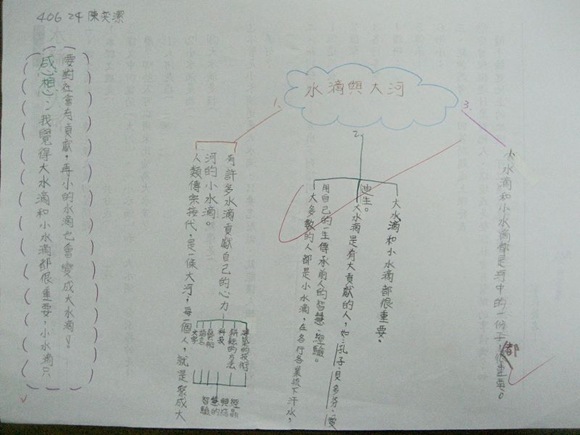 406 24 陳英潔
水滴與大河
1.
人類傳宗接代，是一條大河，每一個人，就是聚成大
河的小水滴。
有許多水滴貢獻自己的心力
2.
大水滴和小水滴都很重要。
大水滴是有大貢獻的人，如：孔子、貝多芬、愛
迪生。
用自己的一生傳承前人的智慧、經驗。
大多數的人都是小水滴，在各行各業流下汗水，
3.
小水滴和大水滴都是河中的一份子，都重要。
感想：我覺得大水滴和小水滴都很重要，小水滴只
要對社會有貢獻，再小的水滴也會變成大水滴！